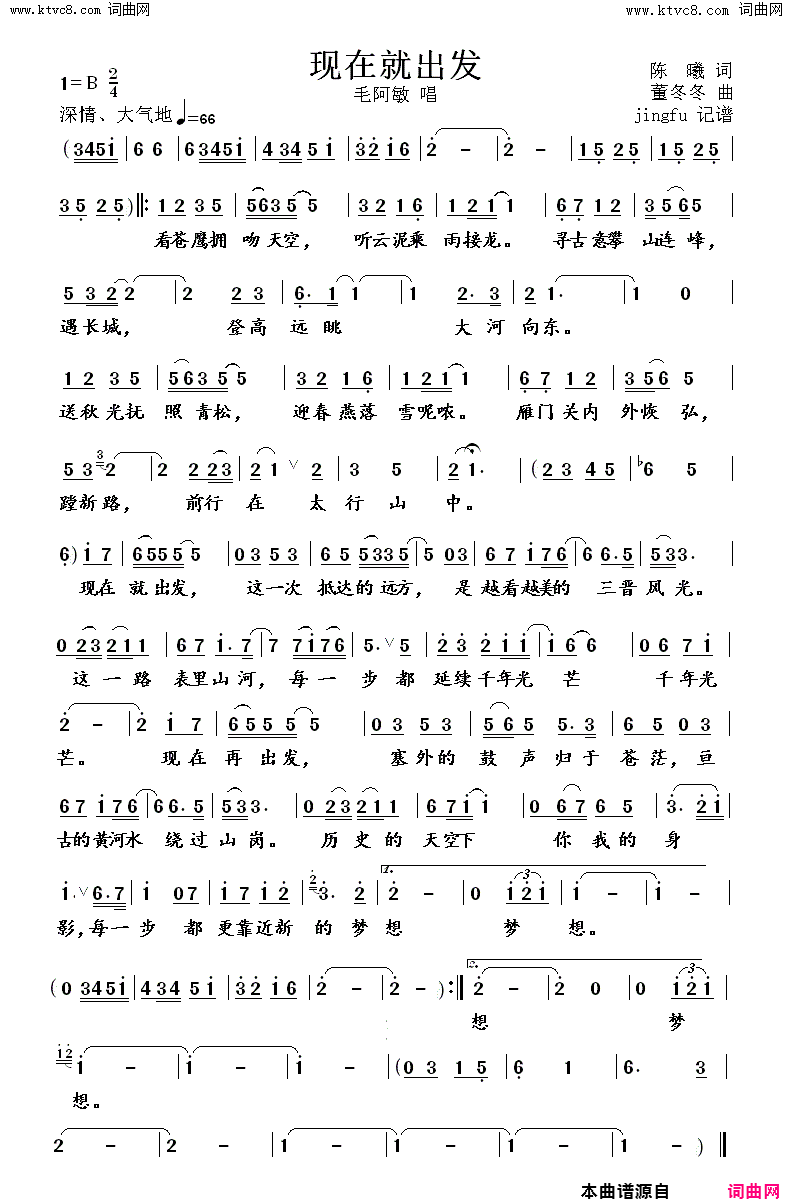 www.ktvc8.com 词曲网
www.ktvc8.com 词曲网
现在就出发
1=B 2/4
毛阿敏 唱
陈 曦 词
董冬冬 曲
深情、大气地 ♩=66
jingfu 记谱
看苍鹰拥吻天空，听云泥乘雨接龙。寻古意攀山连峰，
遇长城，登高远眺大河向东。
送秋光抚照青松，迎春燕落雪呢哝。雁门关内外恢弘，
蹚新路，前行在太行山中。
现在就出发，这一次抵达的远方，是越看越美的三晋风光。
这一路表里山河，每一步都延续千年光芒 千年光
芒。现在再出发，塞外的鼓声归于苍茫，亘
古的黄河水绕过山岗。历史的天空下你我的身
影，每一步都更靠近新的梦想 梦想。
1.
2.
想 梦
想。
本曲谱源自 词曲网